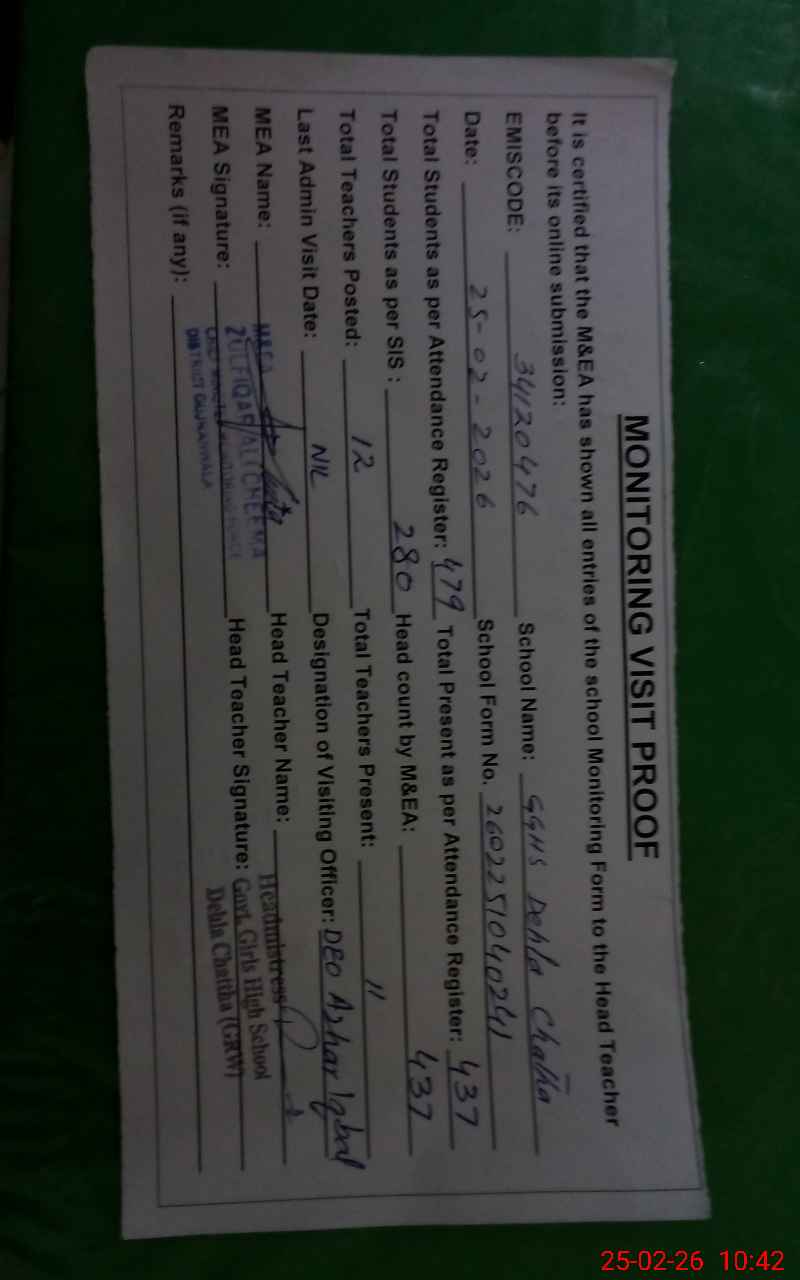 MONITORING VISIT PROOF
It is certified that the M&EA has shown all entries of the school Monitoring Form to the Head Teacher
before its online submission:
EMISCODE: 34120476 School Name: GGHS Dehla Chatha
Date: 25-02-2026 School Form No. 260225104024
Total Students as per Attendance Register: 479 Total Present as per Attendance Register: 437
Total Students as per SIS : 280 Head count by M&EA: 437
Total Teachers Posted: 12 Total Teachers Present: 11
Last Admin Visit Date: NIL Designation of Visiting Officer: DEO Azhar Iqbal
MEA Name: Head Teacher Name:
MEA Signature: Head Teacher Signature:
Remarks (if any):
ZULFIQAR ALI CHEEMA
DISTRICT GUJRANWALA
Headmistress
Govt. Girls High School
Dehla Chattha (GRW)
25-02-26 10:42